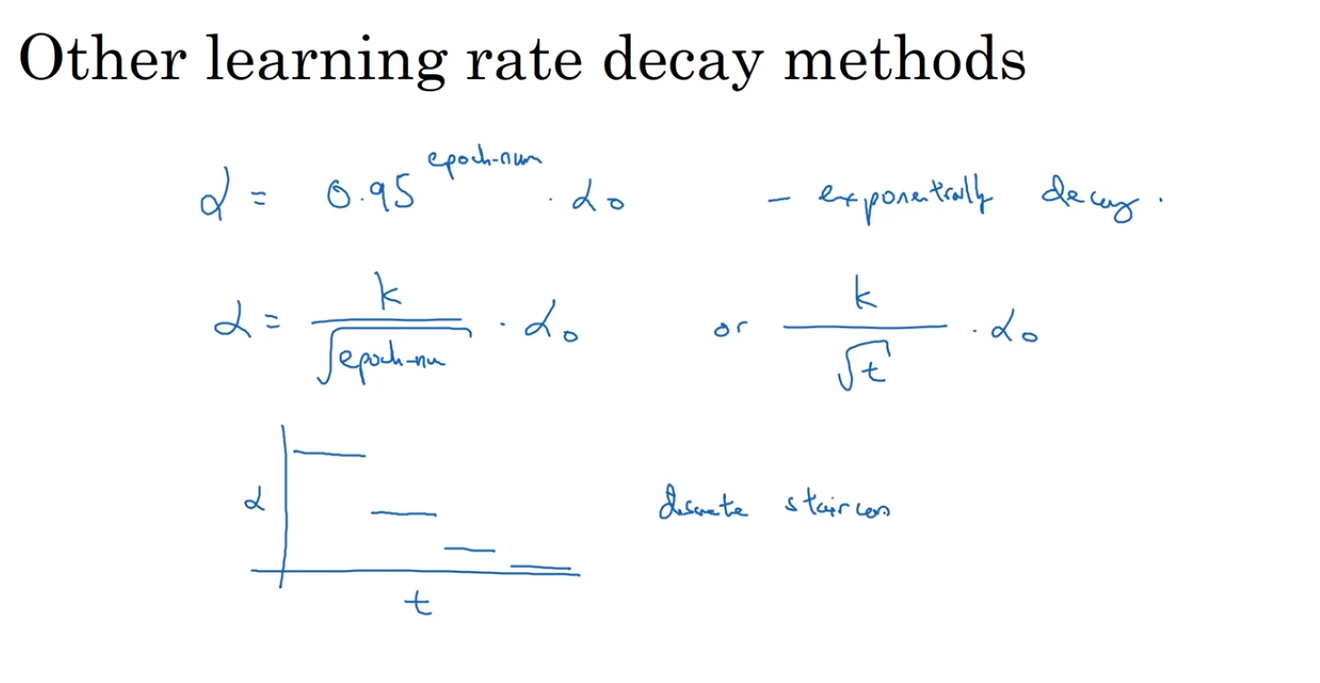 Other learning rate decay methods
α = 0.95^epoch-num · α₀ - exponentially decay.
α = k/√epoch-num · α₀ or k/√t · α₀
α
discrete staircase
t